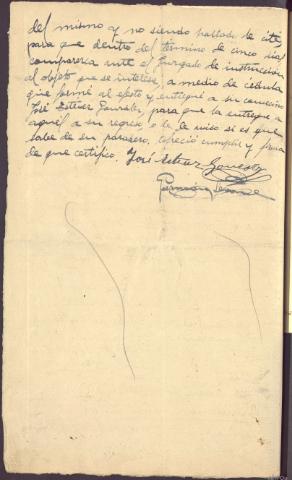 del mismo y no siendo hallado le cité
para que dentro del término de cinco días
comparezca ante el Juzgado de instrucción
al objeto que se interesa, a medio de cédula
que formé al efecto y entregué a su convecino
José Estévez González, para que la entregue a
aquél a su regreso, o le avise si es que
sabe de su paradero. Ofreció cumplir y firma
de que certifico. José Estevez González
Germán